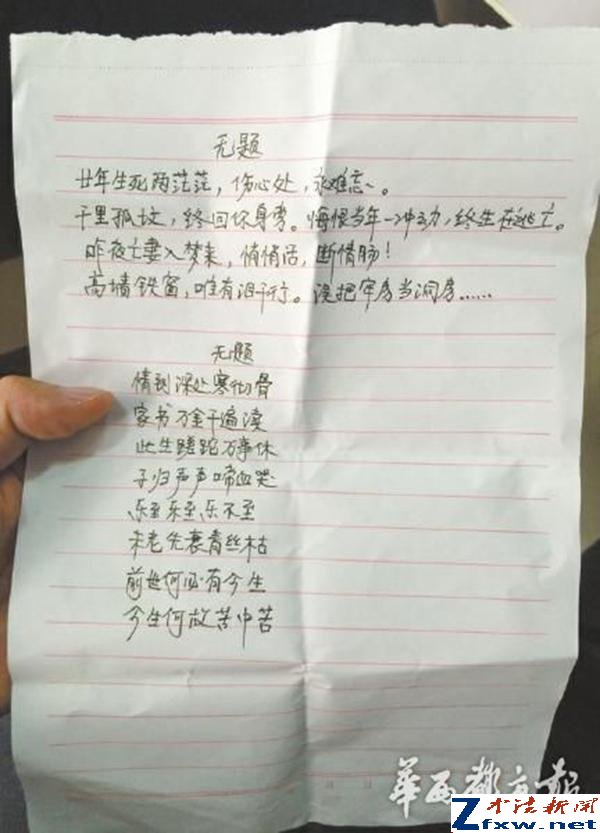 无题
廿年生死两茫茫，伤心处，永难忘。
千里孤坟，终回你身旁。悔恨当年一冲动，终生在逃亡。
昨夜亡妻入梦来，悄悄话，断情肠！
高墙铁窗，唯有泪千行。误把牢房当洞房……
无题
情到深处寒彻骨
家书万金千遍读
此生蹉跎万事休
子归声声啼血哭
乐至乐至乐不至
未老先衰青丝枯
前世何必有今生
今生何故苦中苦
华西都市报
才法新闻
Zfxw.net